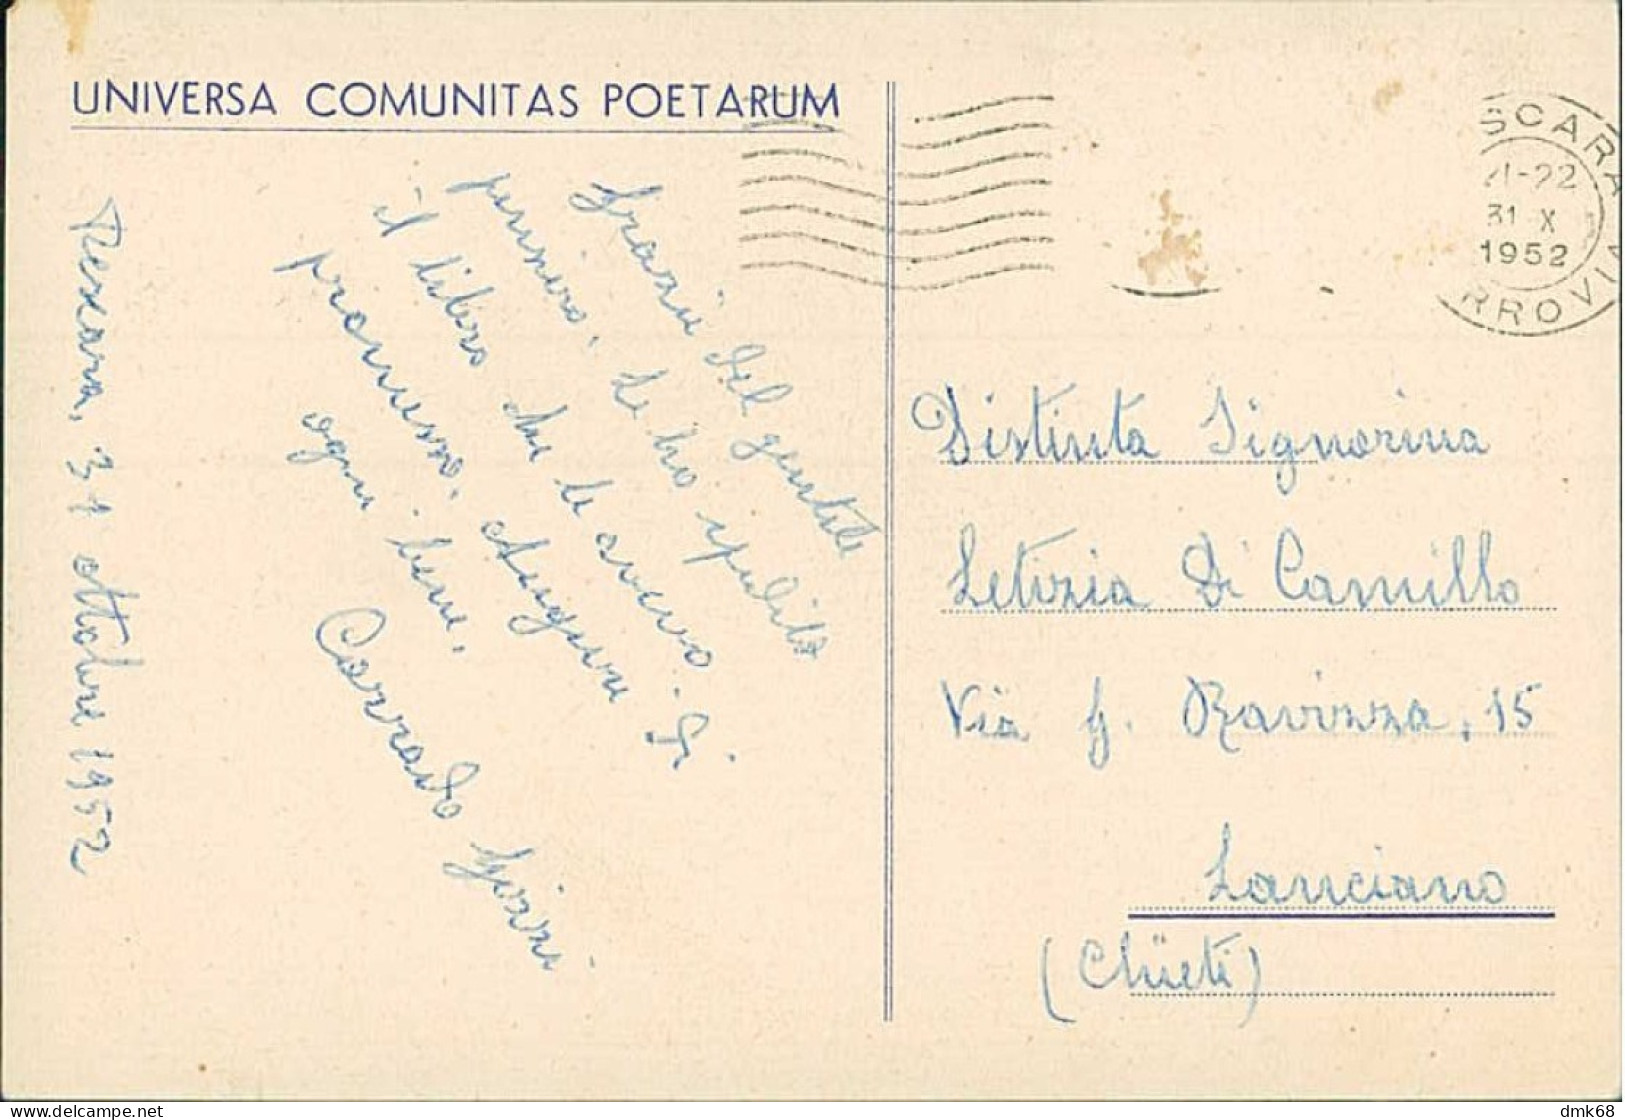 UNIVERSA COMUNITAS POETARUM
Pescara, 31 ottobre 1952
Grazie del gentile
pensiero. Le ho spedito
il libro che le avevo
promesso. Auguri di
ogni bene.
Corrado
SCARA
21-22
31 X
1952
RROVIA
Distinta Signorina
Letizia Di Camillo
Via G. Ravizza, 15
Lanciano
(Chieti)
delcampe.net
dmk68